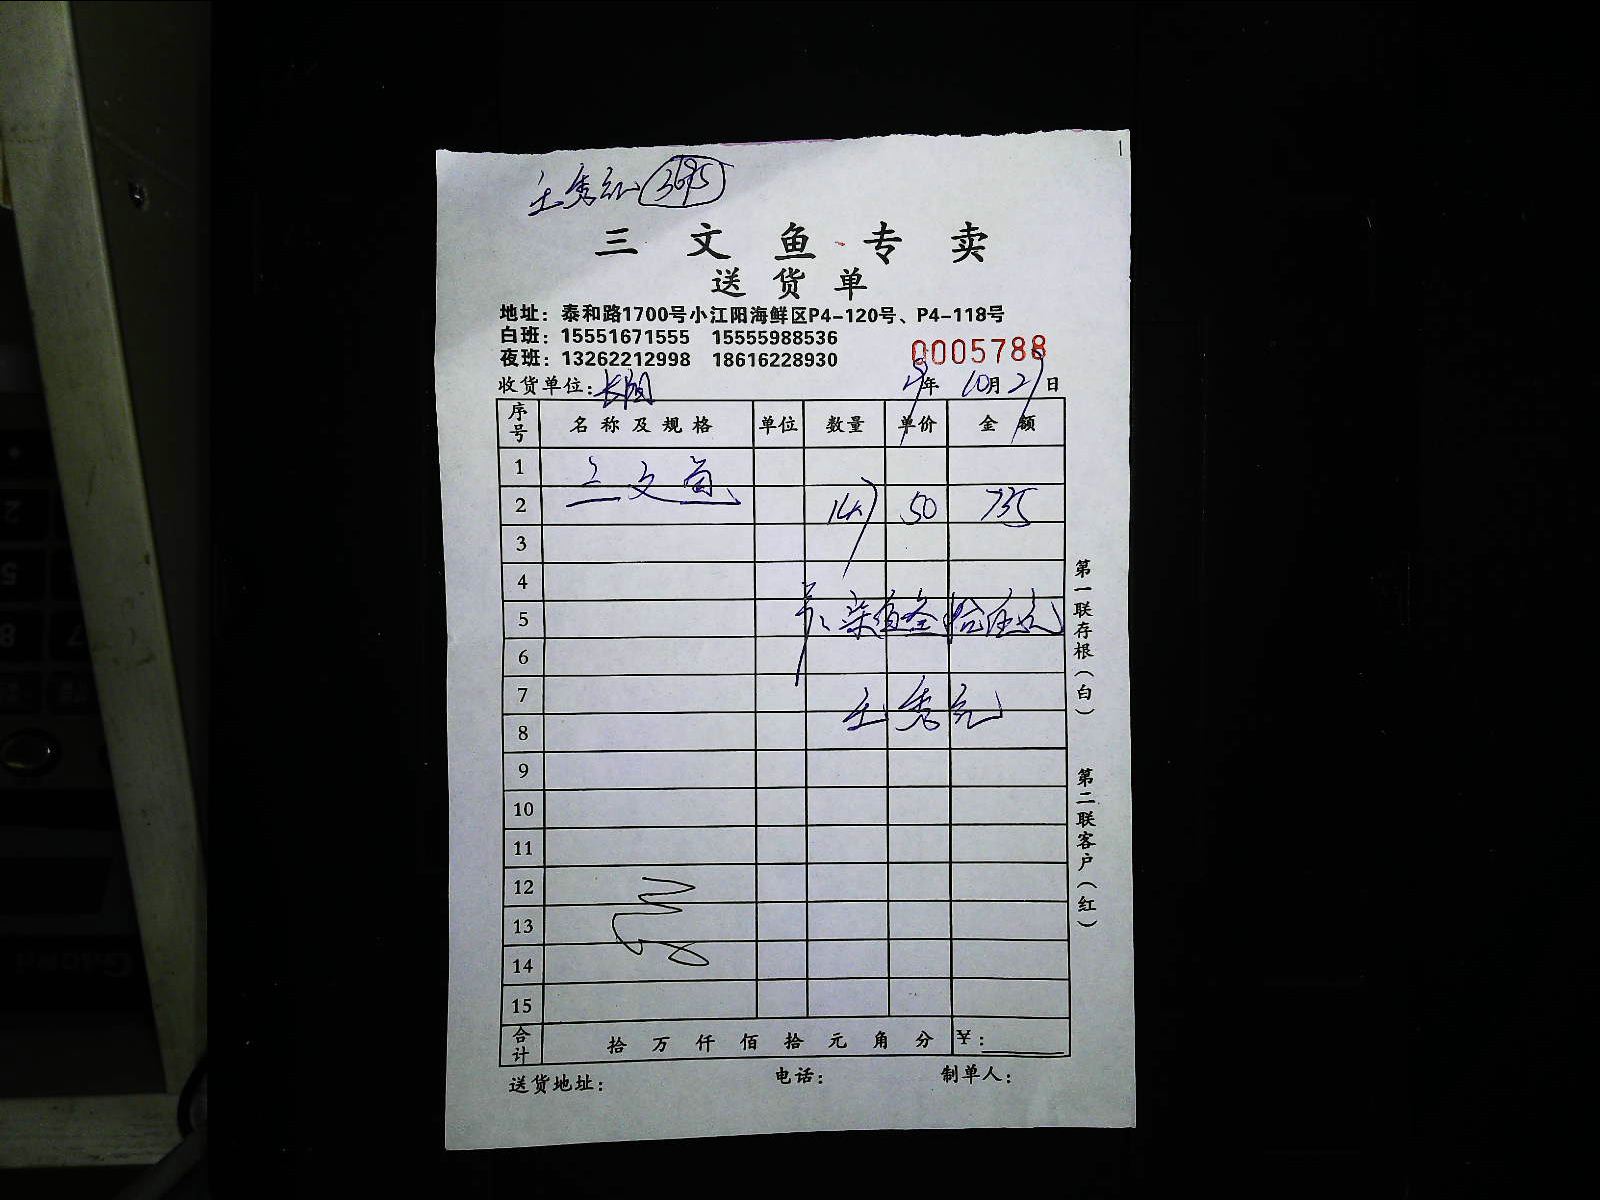 王秀红 3695
三文鱼专卖
送货单
地址：泰和路1700号小江阳海鲜区P4-120号、P4-118号
白班：15551671555 15555988536
夜班：13262212998 18616228930
0005788
收货单位：长阳 19年 10月29日
序号 名称及规格 单位 数量 单价 金额
1 三文鱼
2 50 735
3
4
5 柒佰叁拾伍元
6
7 王秀红
8
9
10
11
12
13
14
15
合计 拾 万 仟 佰 拾 元 角 分 ¥：
送货地址： 电话： 制单人：
第一联存根（白）
第二联客户（红）